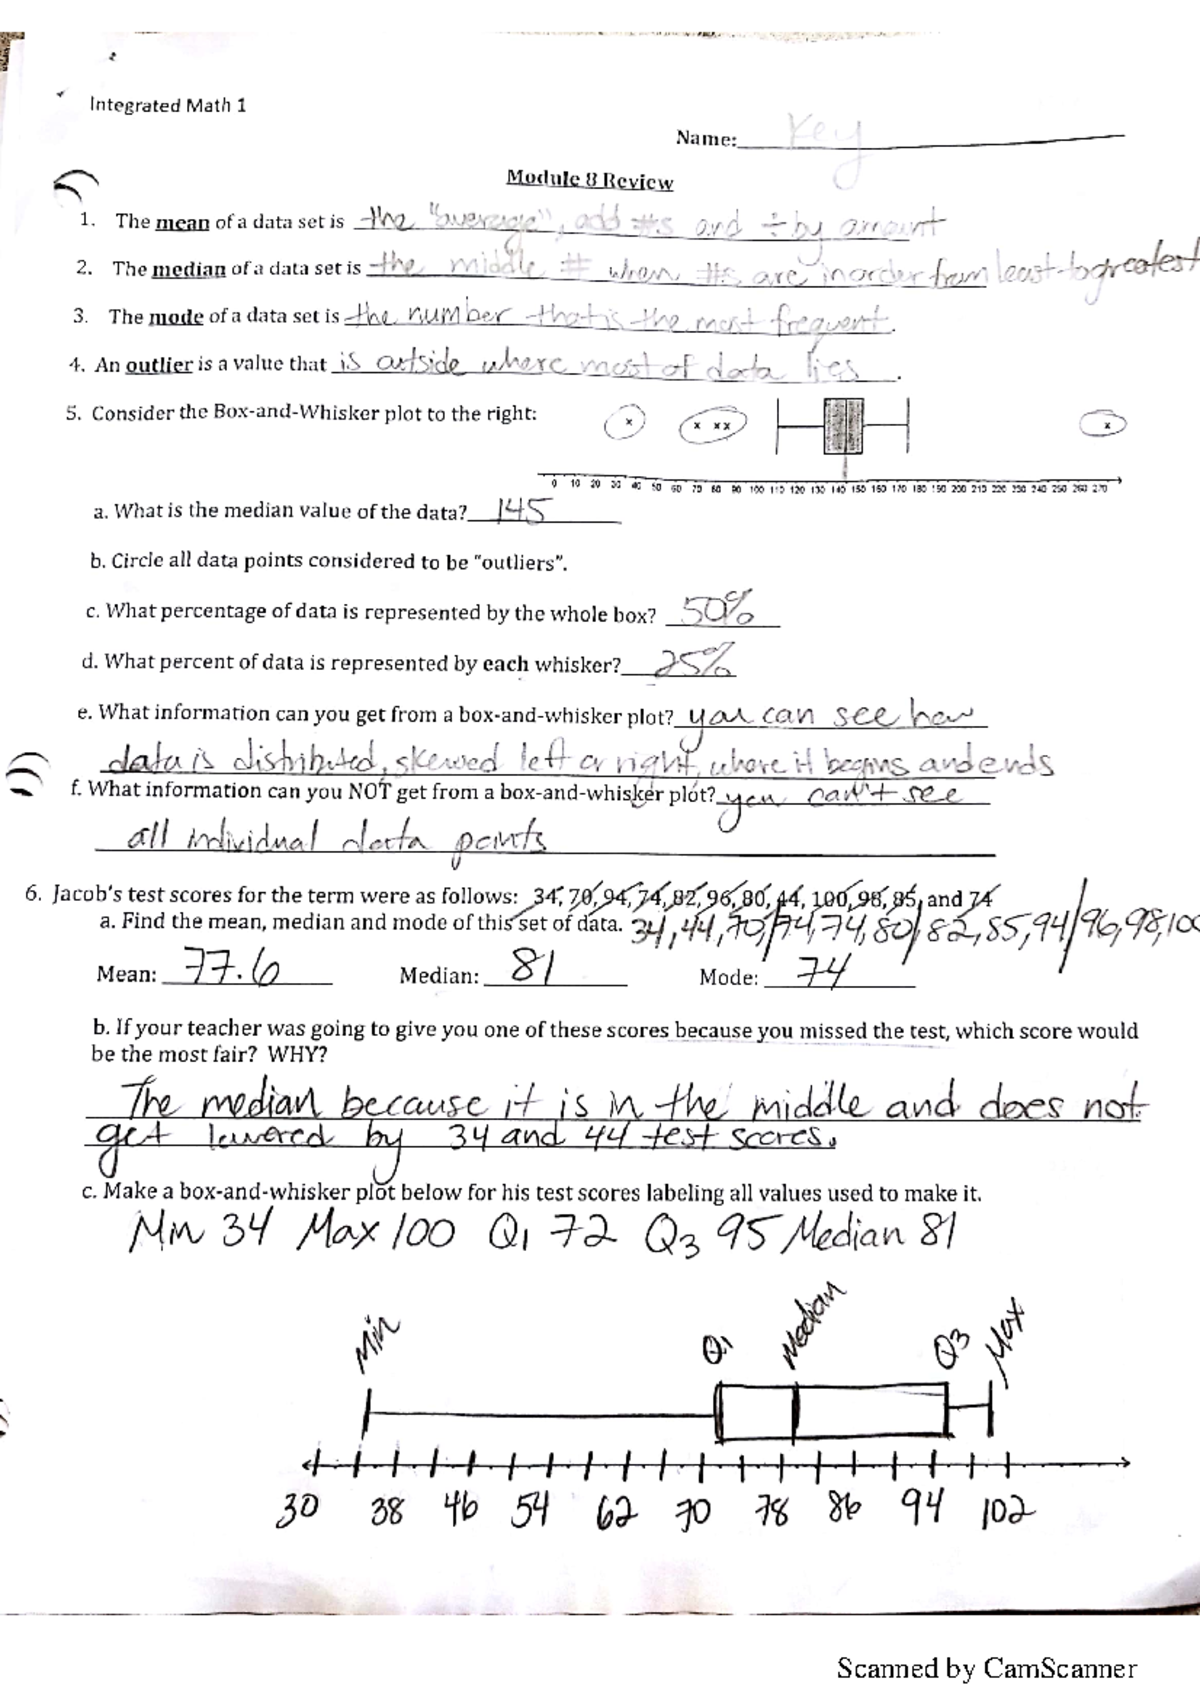 Integrated Math 1
Name: Key
Module 8 Review
1. The mean of a data set is the "average", add #s and ÷ by amount
2. The median of a data set is the middle # when #s are in order from least to greatest
3. The mode of a data set is the number that is the most frequent.
4. An outlier is a value that is outside where most of data lies.
5. Consider the Box-and-Whisker plot to the right:
x x xx x
0 10 20 30 40 50 60 70 80 90 100 110 120 130 140 150 160 170 180 190 200 210 220 230 240 250 260 270
a. What is the median value of the data? 145
b. Circle all data points considered to be "outliers".
c. What percentage of data is represented by the whole box? 50%
d. What percent of data is represented by each whisker? 25%
e. What information can you get from a box-and-whisker plot? you can see how
data is distributed, skewed left or right, where it begins and ends
f. What information can you NOT get from a box-and-whisker plot? you can't see
all individual data points
6. Jacob's test scores for the term were as follows: 34, 70, 94, 74, 82, 96, 80, 44, 100, 98, 85, and 74
a. Find the mean, median and mode of this set of data. 34, 44, 70, / 74, 74, 80, / 82, 85, 94 / 96, 98, 100
Mean: 77.6 Median: 81 Mode: 74
b. If your teacher was going to give you one of these scores because you missed the test, which score would
be the most fair? WHY?
The median because it is in the middle and does not
get lowered by 34 and 44 test scores.
c. Make a box-and-whisker plot below for his test scores labeling all values used to make it.
Min 34 Max 100 Q1 72 Q3 95 Median 81
Min Q1 Median Q3 Max
30 38 46 54 62 70 78 86 94 102
Scanned by CamScanner